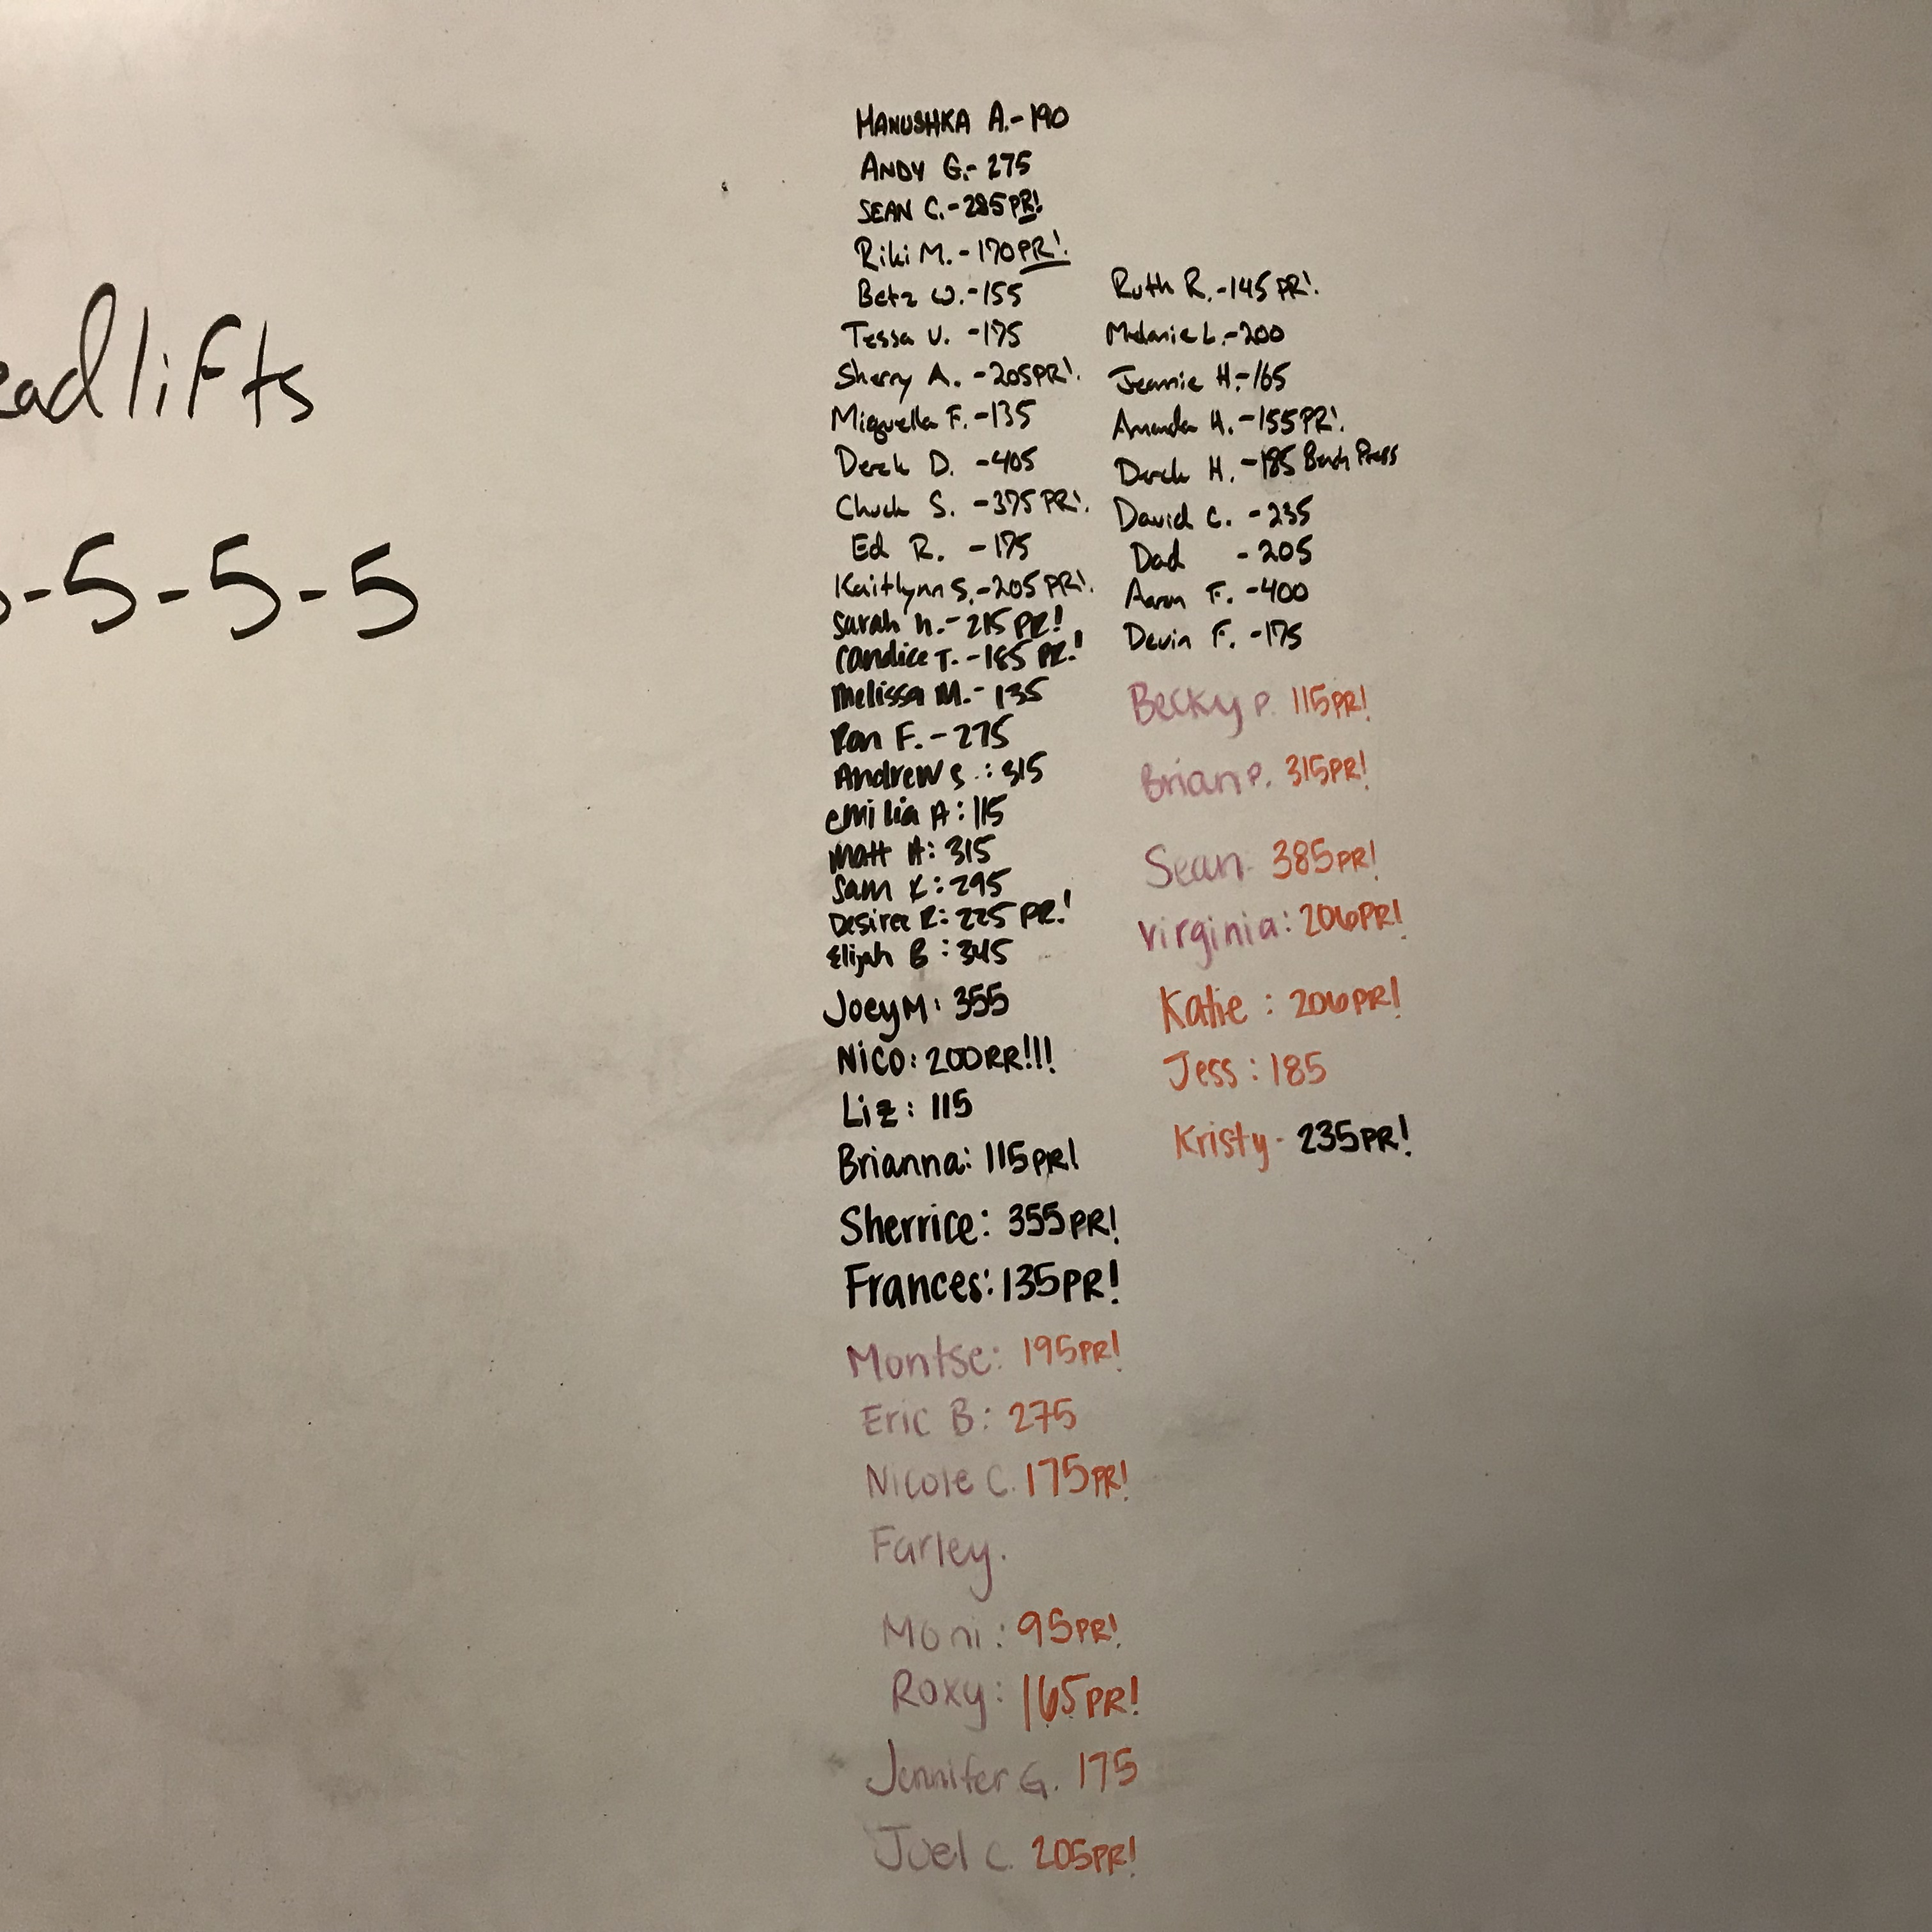 eadlifts
5-5-5-5
MANUSHKA A.-190
ANDY G.- 275
SEAN C.-285PR!
Riki M.-170PR!
Betz W.-155
Tessa V. -175
Sherry A. -205PR!
Miquella F.-135
Derek D. -405
Chuck S. -375PR!
Ed R. -175
Kaitlynn S.-205PR!
Sarah N.-215PR!
Candice T.-185 PR!
Melissa M.- 135
Ron F.-275
Andrew S.: 315
emilia A: 115
Matt A: 315
Sam K: 295
Desiree R: 225 PR!
Elijah B: 345
Joey M: 355
Nico: 200RR!!!
Liz: 115
Brianna: 115PR!
Sherrice: 355PR!
Frances: 135PR!
Montse: 195PR!
Eric B: 275
Nicole C. 175PR!
Farley.
Moni: 95PR!
Roxy: 165PR!
Jennifer G. 175
Joel C. 205PR!
Ruth R.-145PR!
Melanie L.-200
Jeannie H.-165
Amanda H.-155PR!
Derek H.-185 Bench Press
David C. -235
Dad -205
Aaron F. -400
Devin F. -175
Becky P. 115PR!
Brian P. 315PR!
Sean- 385PR!
Virginia: 206PR!
Katie: 206PR!
Jess: 185
Kristy- 235PR!